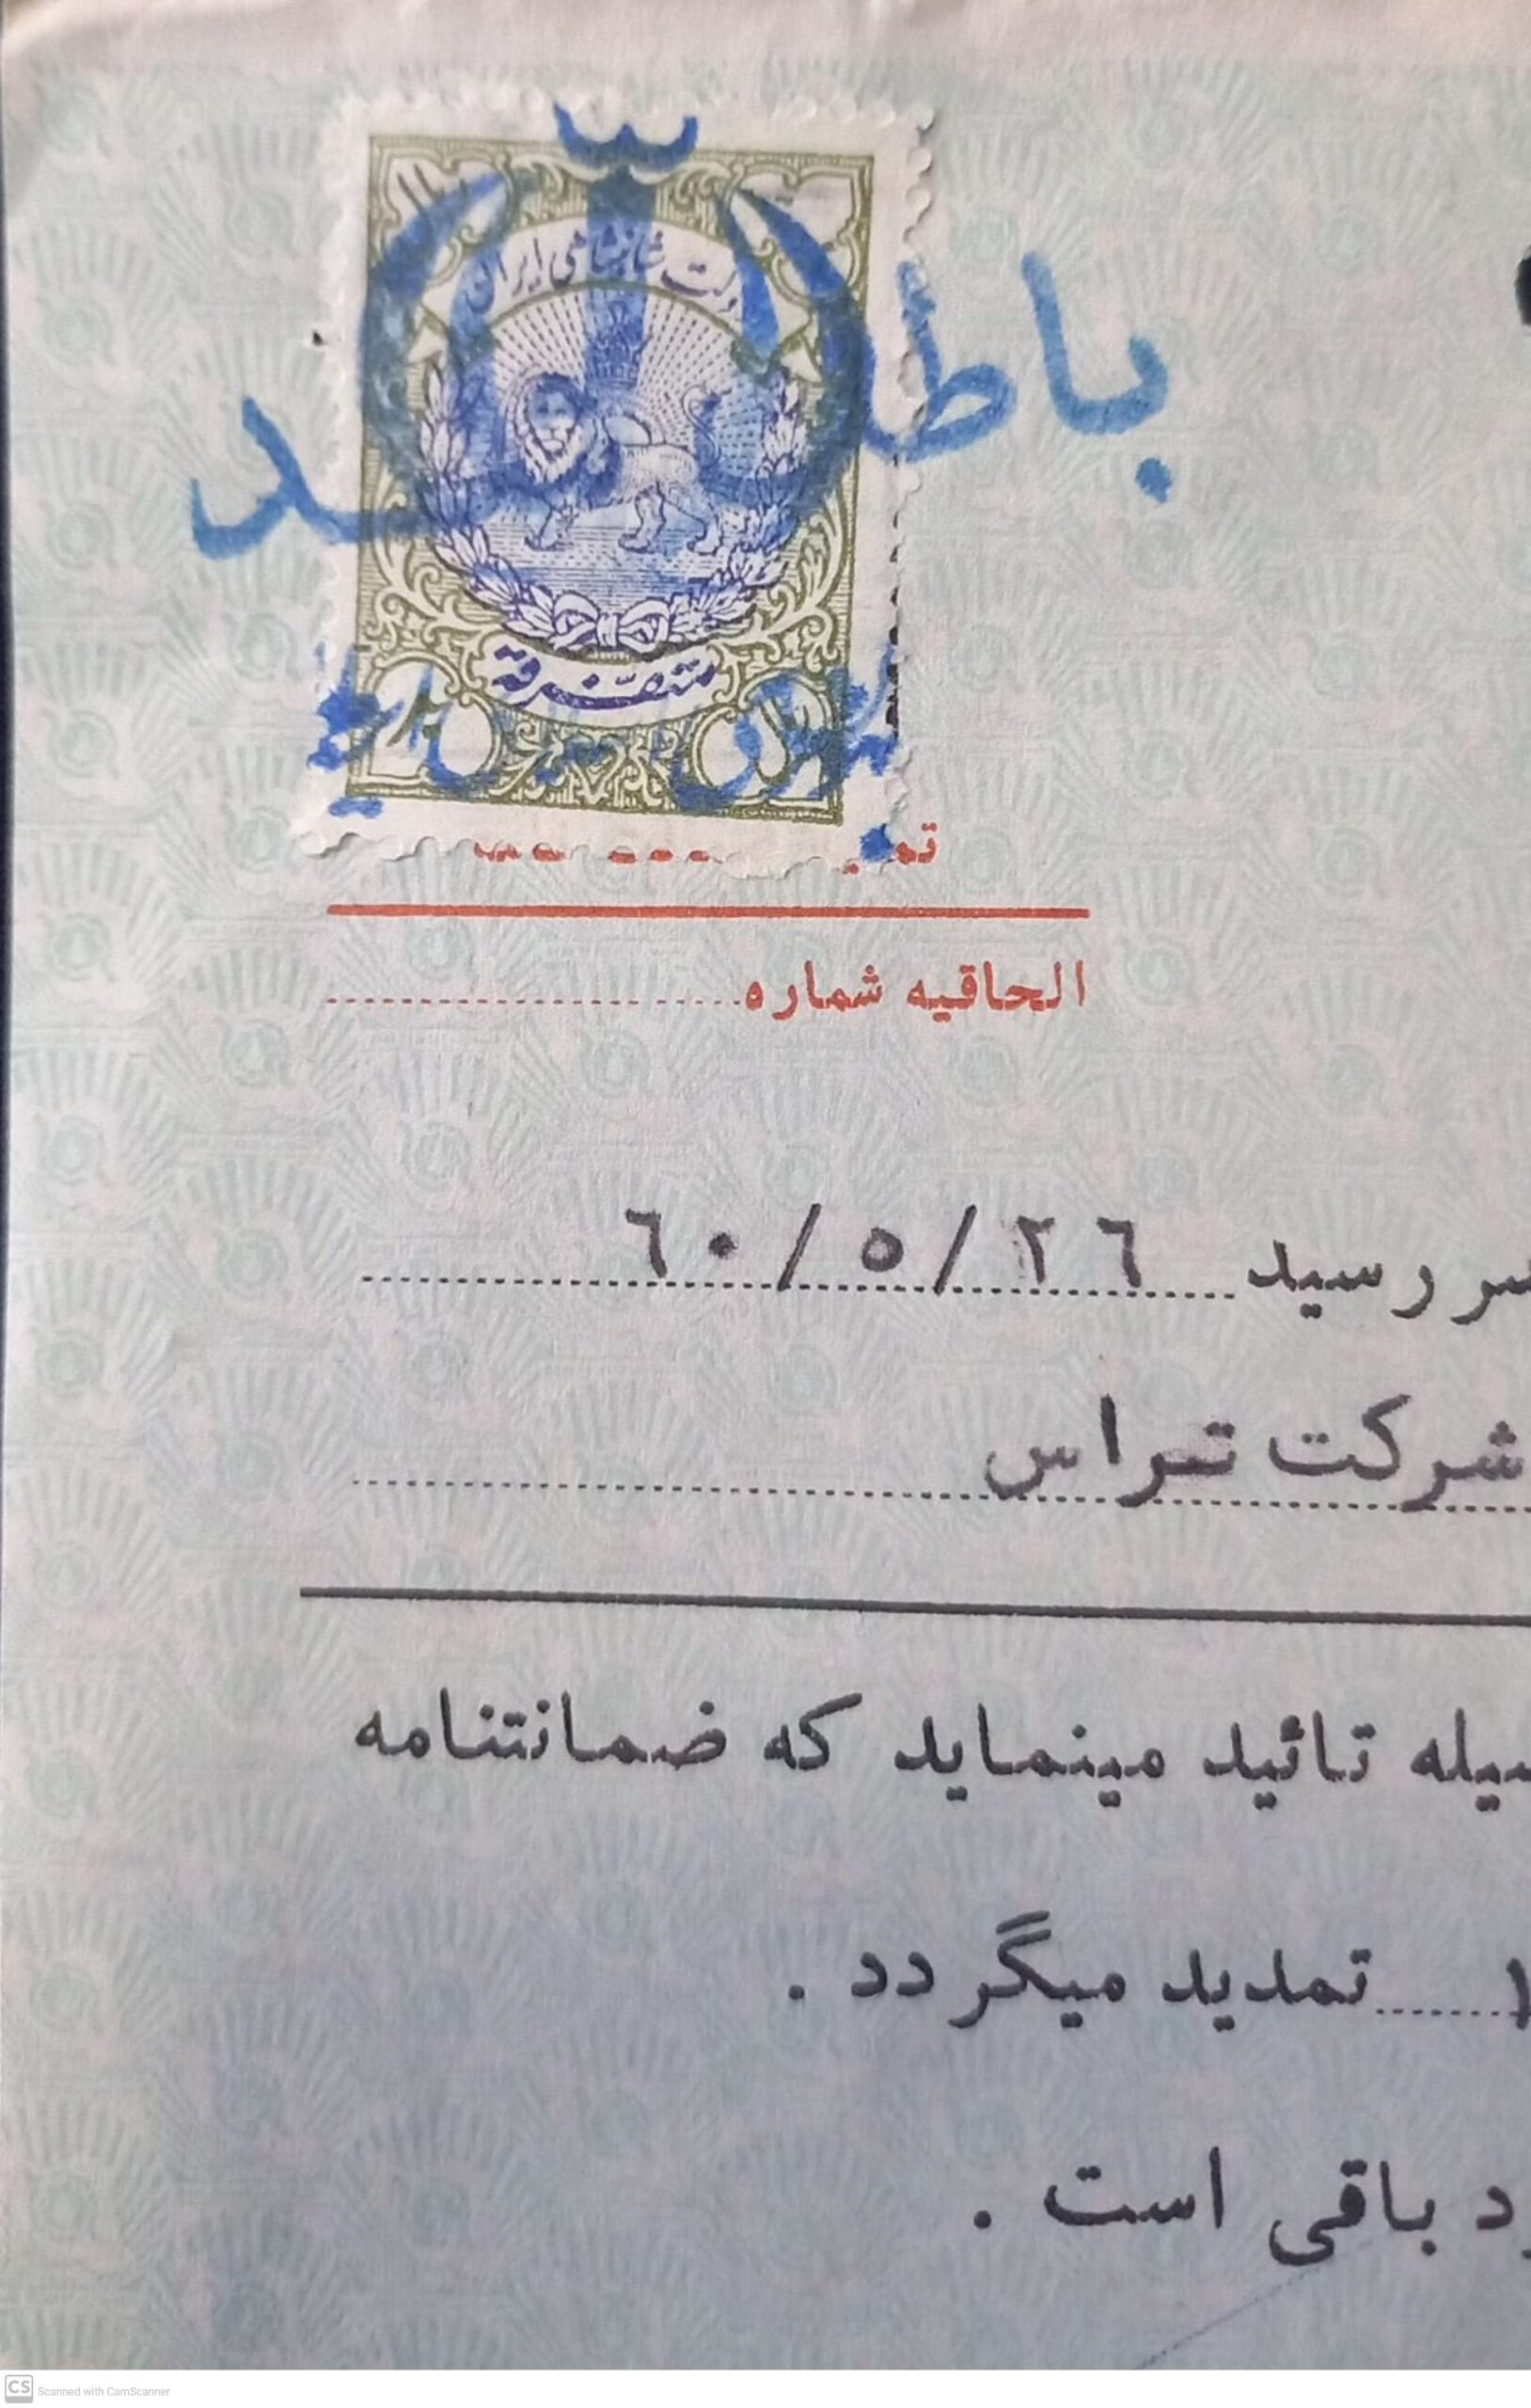 دولت شاهنشاهی ایران
باطل شد
متفرقه
الحاقیه شماره
سر رسید ٦٠/٥/٢٦
شرکت تراس
تائید مینماید که ضمانتنامه
تمدید میگردد .
باقی است .
CS Scanned with CamScanner